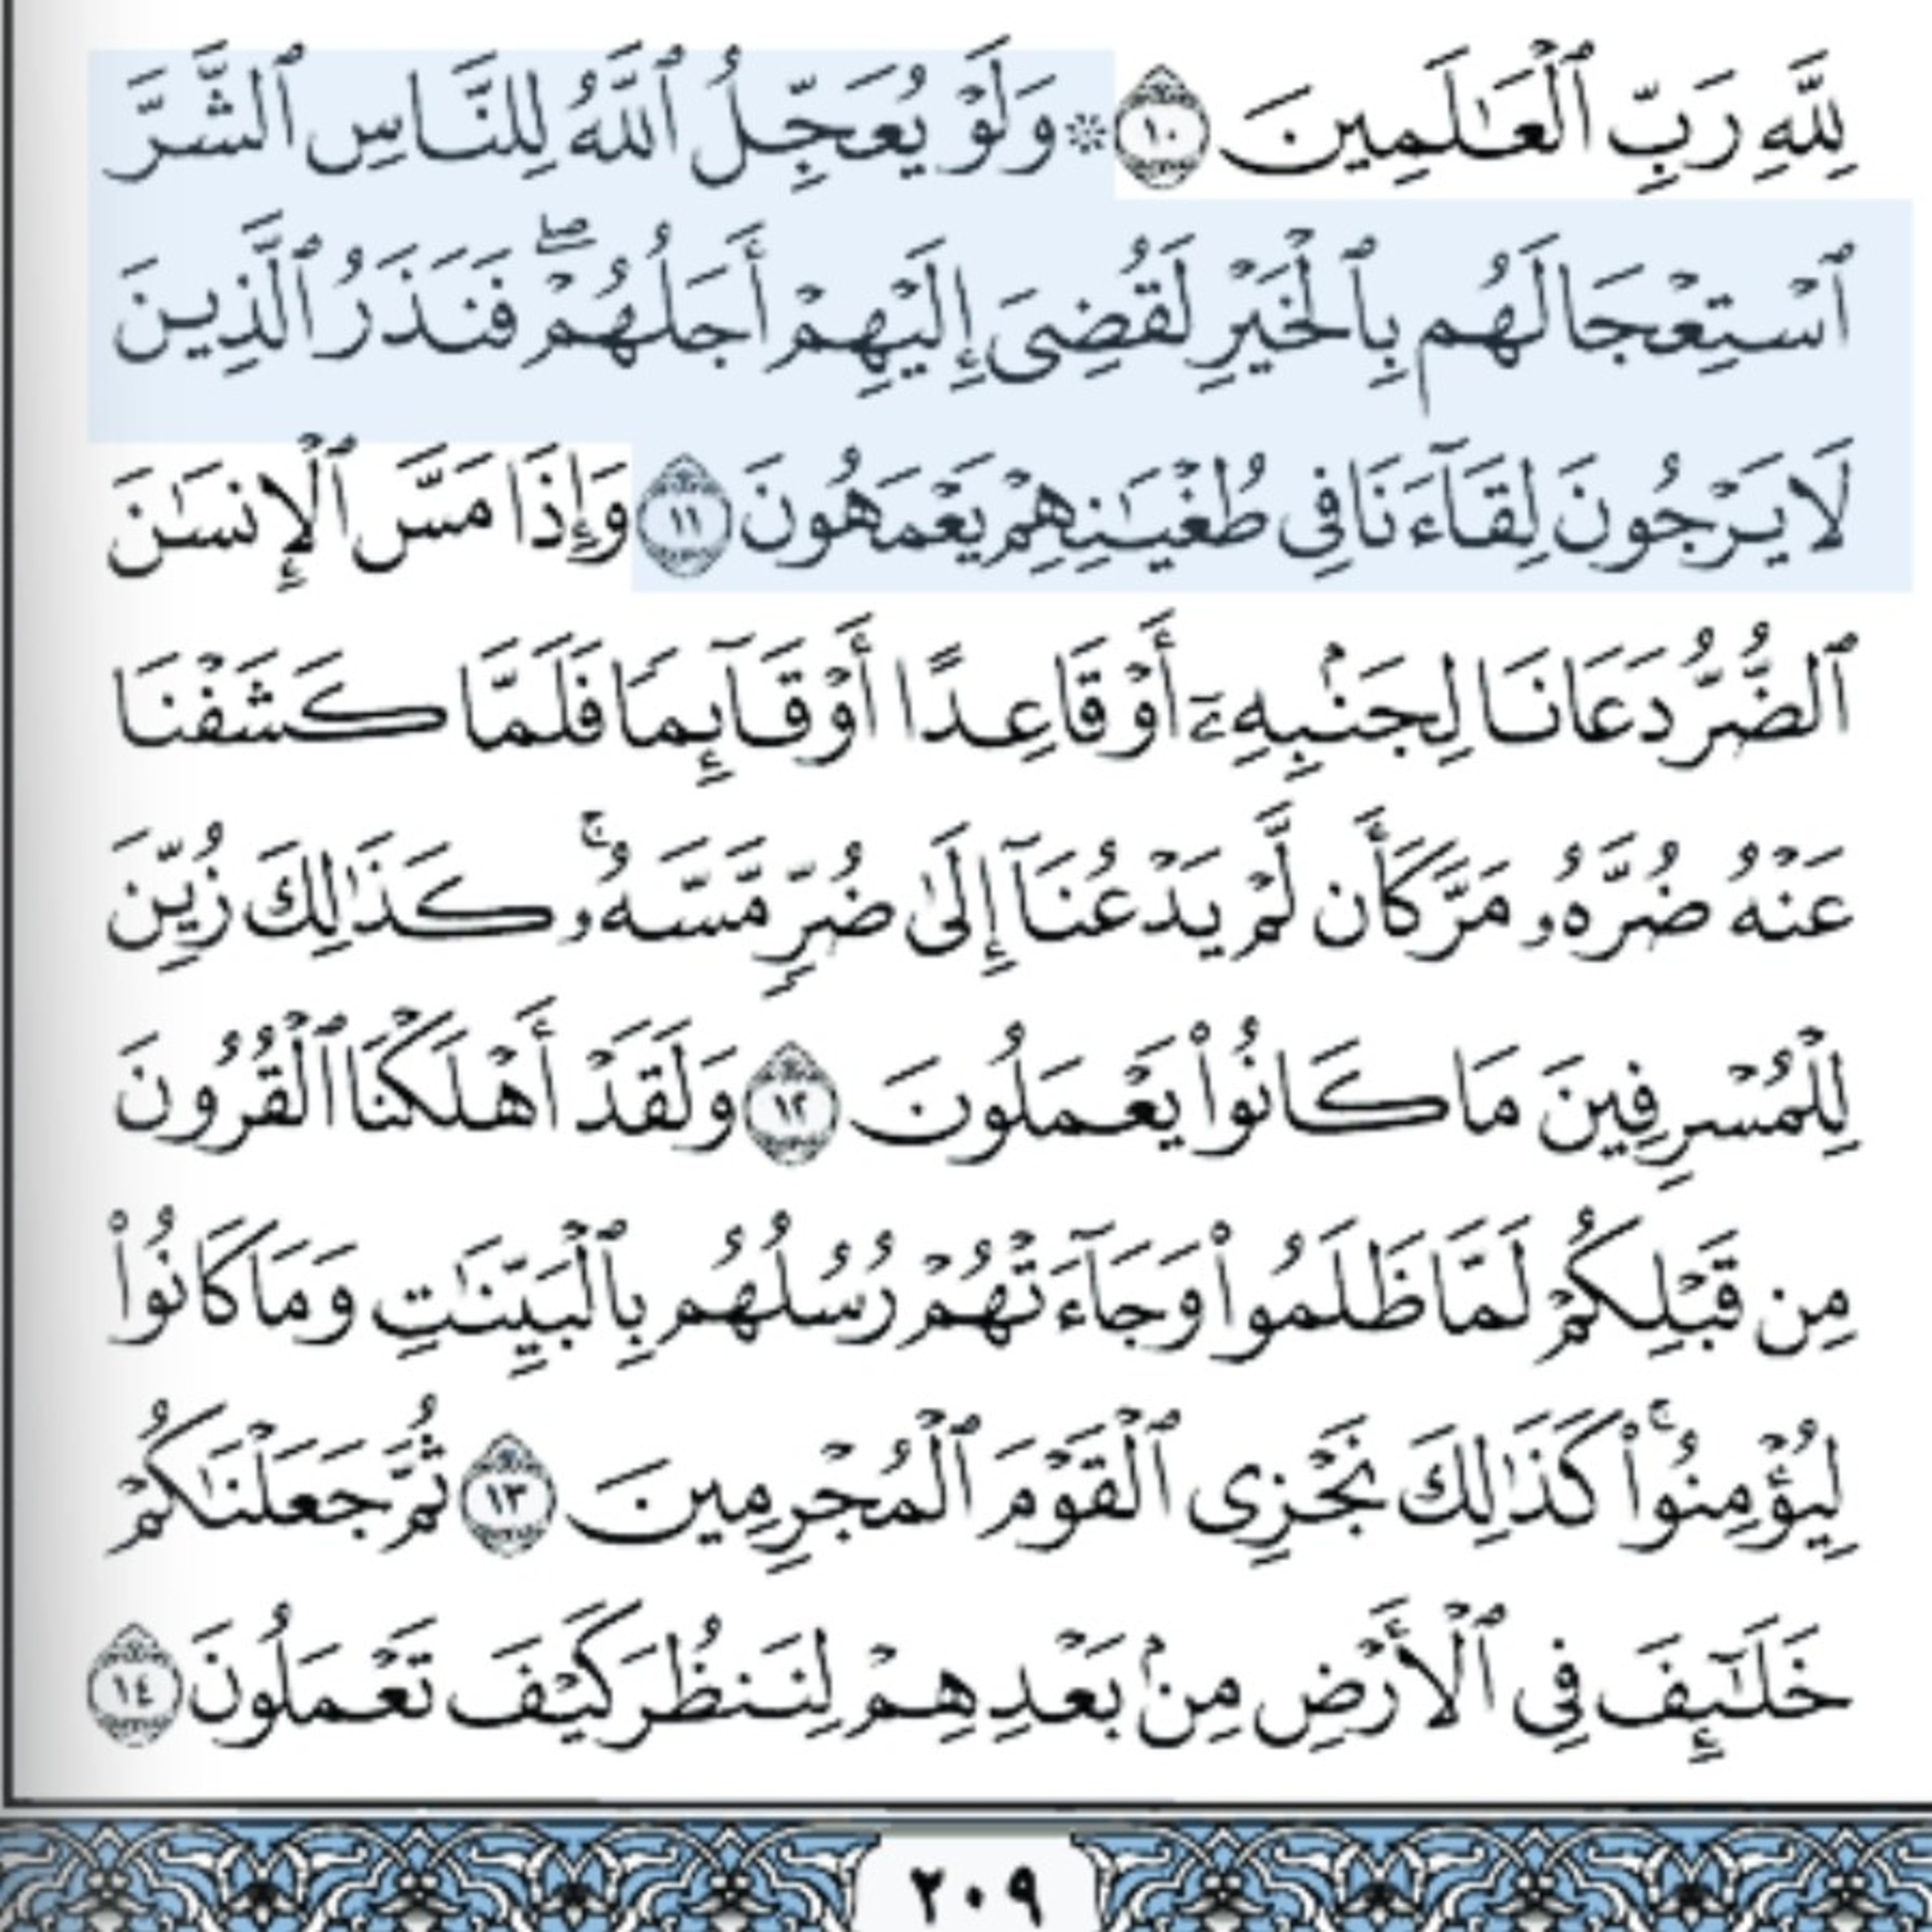 لِلَّهِ رَبِّ ٱلْعَـٰلَمِينَ ١٠ ۞ وَلَوْ يُعَجِّلُ ٱللَّهُ لِلنَّاسِ ٱلشَّرَّ
ٱسْتِعْجَالَهُم بِٱلْخَيْرِ لَقُضِىَ إِلَيْهِمْ أَجَلُهُمْ ۖ فَنَذَرُ ٱلَّذِينَ
لَا يَرْجُونَ لِقَآءَنَا فِى طُغْيَـٰنِهِمْ يَعْمَهُونَ ١١ وَإِذَا مَسَّ ٱلْإِنسَـٰنَ
ٱلضُّرُّ دَعَانَا لِجَنۢبِهِۦٓ أَوْ قَاعِدًا أَوْ قَآئِمًا فَلَمَّا كَشَفْنَا
عَنْهُ ضُرَّهُۥ مَرَّ كَأَن لَّمْ يَدْعُنَآ إِلَىٰ ضُرٍّ مَّسَّهُۥ ۚ كَذَٰلِكَ زُيِّنَ
لِلْمُسْرِفِينَ مَا كَانُوا۟ يَعْمَلُونَ ١٢ وَلَقَدْ أَهْلَكْنَا ٱلْقُرُونَ
مِن قَبْلِكُمْ لَمَّا ظَلَمُوا۟ وَجَآءَتْهُمْ رُسُلُهُم بِٱلْبَيِّنَـٰتِ وَمَا كَانُوا۟
لِيُؤْمِنُوا۟ ۚ كَذَٰلِكَ نَجْزِى ٱلْقَوْمَ ٱلْمُجْرِمِينَ ١٣ ثُمَّ جَعَلْنَـٰكُمْ
خَلَـٰٓئِفَ فِى ٱلْأَرْضِ مِنۢ بَعْدِهِمْ لِنَنظُرَ كَيْفَ تَعْمَلُونَ ١٤
٢٠٩